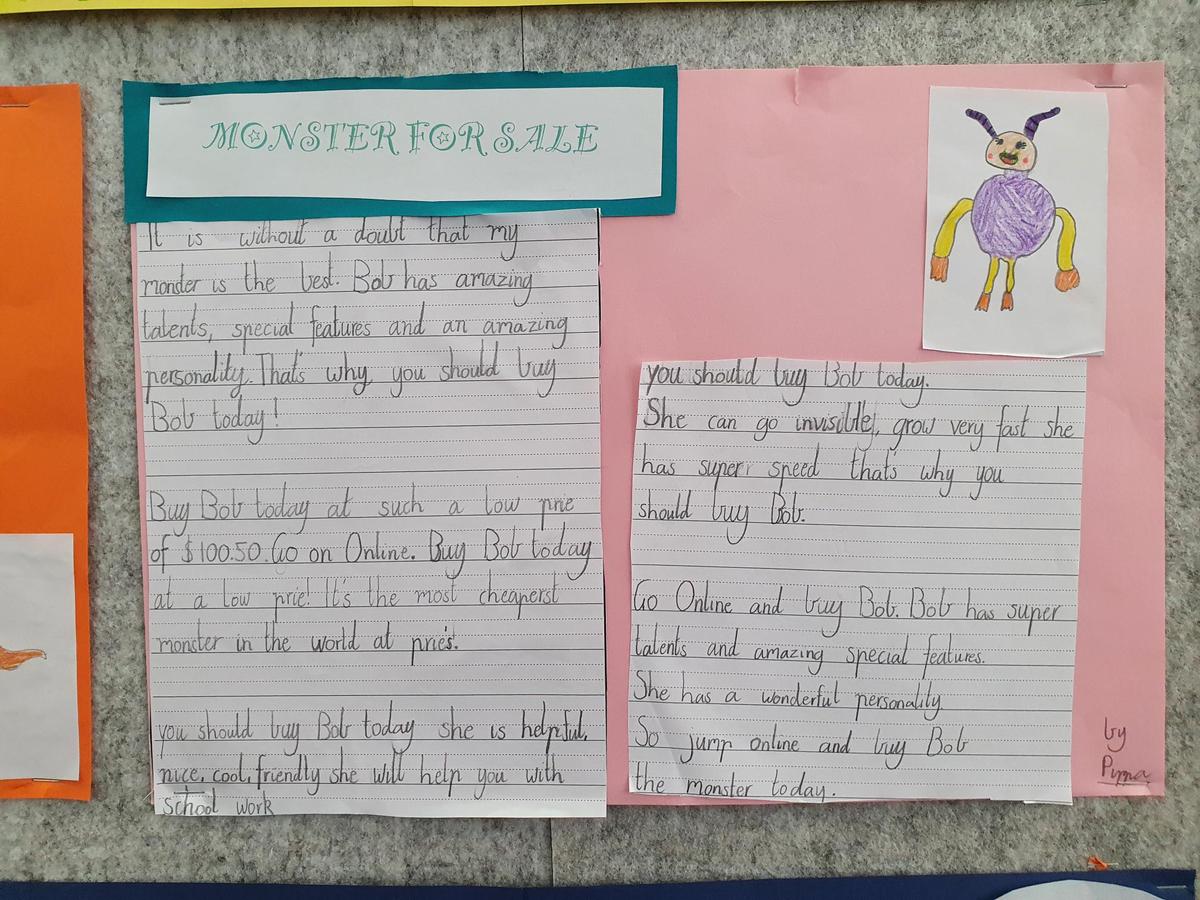 MONSTER FOR SALE
It is without a doubt that my
monster is the best. Bob has amazing
talents, special features and an amazing
personality. That's why you should buy
Bob today!
Buy Bob today at such a low prie
of $100.50. Go on Online. Buy Bob today
at a low prie! It's the most cheaperst
monster in the world at prie's.
you should buy Bob today she is helpful,
nice, cool, friendly she will help you with
school work
you should buy Bob today.
She can go invisible, grow very fast she
has super speed that's why you
should buy Bob.
Go Online and buy Bob. Bob has super
talents and amazing special features.
She has a wonderful personality
So jump online and buy Bob
the monster today.
by